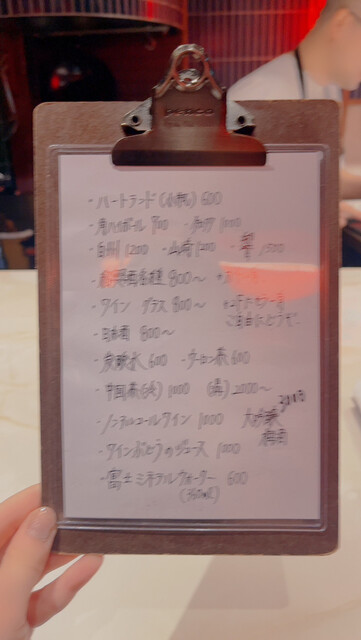 ・ハートランド(小瓶) 600
・角ハイボール 700 ・知多 1000
・白州 1200 ・山崎 1200 ・響 1500
800〜
・ワイン グラス 800〜
ご自由にどうぞ。
・日本酒 800〜
・炭酸水 600 ・ウーロン茶 600
・中国茶(冷) 1000 (温) 2000〜
・ノンアルコールワイン 1000
・ワインぶどうのジュース 1000
・富士ミネラルウォーター 600